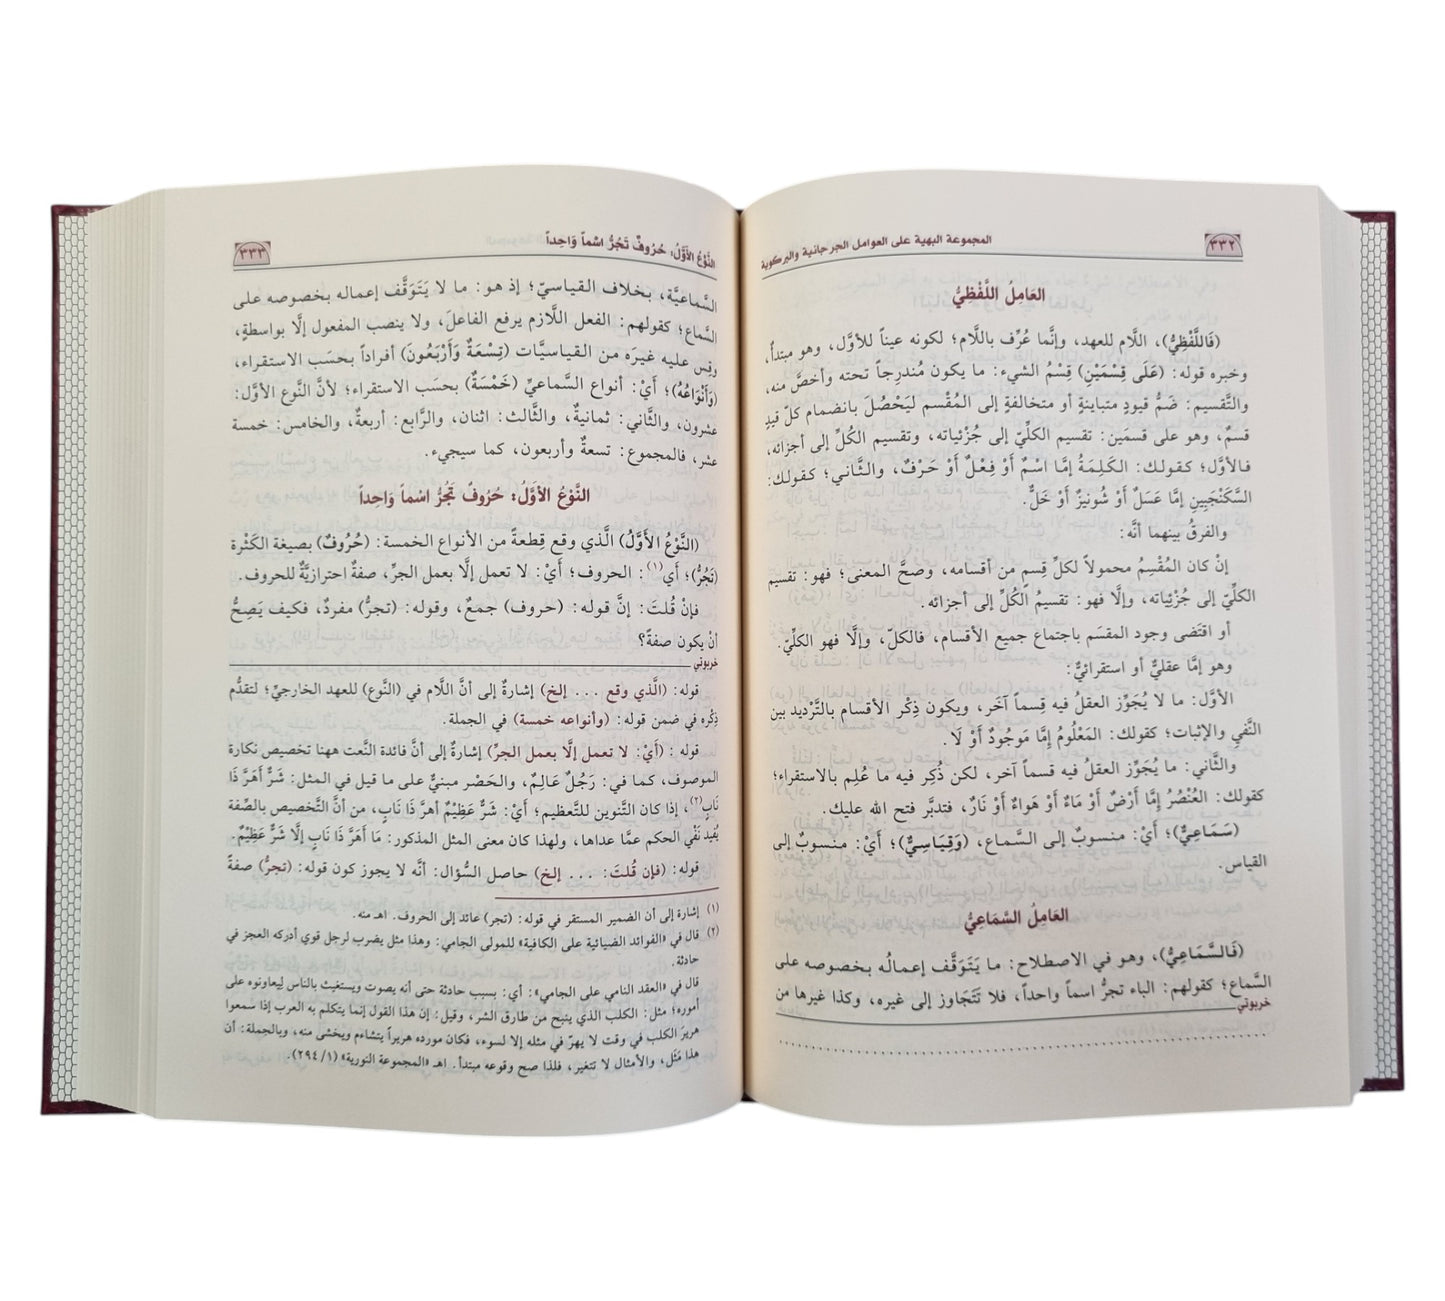 ٣٣٢
المجموعة البهية على العوامل الجرجانية والبركوية
العَامِلُ اللَّفْظِيُّ
(فَاللَّفْظِيُّ)، اللَّام للعهد، وإنَّما عُرِّف باللَّام؛ لكونه عيناً للأوَّل، وهو مبتدأٌ،
وخبره قوله: (عَلَى قِسْمَيْنِ) قِسْمُ الشيء: ما يكون مُندرِجاً تحته وأخصَّ منه،
والتَّقسيم: ضَمُّ قيودٍ متباينةٍ أو متخالفةٍ إلى المُقْسم ليَحْصُلَ بانضمام كلّ قيدٍ
قسمٌ، وهو على قسمَين: تقسيم الكلِّيّ إلى جُزْئياته، وتقسيم الكُلِّ إلى أجزائه،
فالأوَّل؛ كقولك: الكَلِمَةُ إمَّا اسْمٌ أَوْ فِعْلٌ أَوْ حَرْفٌ، والثَّاني؛ كقولك:
السَّكَنْجَبِين إمَّا عَسَلٌ أَوْ شُونيزٌ أَوْ خَلٌّ.
والفرقُ بينهما أنَّه:
إنْ كان المُقْسِمُ محمولاً لكلِّ قِسمٍ من أقسامه، وصحَّ المعنى؛ فهو: تقسيم
الكلِّيّ إلى جُزْئِياته، وإلَّا فهو: تقسيمُ الكُلِّ إلى أجزائه.
أو اقتَضى وجود المقسَم باجتماع جميع الأقسام، فالكلّ، وإلَّا فهو الكلِّيّ.
وهو إمَّا عقليٌّ أو استقرائيٌّ:
الأوَّل: ما لا يُجَوِّز العقلُ فيه قِسماً آخَر، ويكون ذِكْر الأقسام بالتَّرْديد بين
النَّفيِ والإثبات؛ كقولك: المَعْلُومُ إِمَّا مَوجُودٌ أَوْ لَا.
والثَّاني: ما يُجَوِّز العقلُ فيه قسماً آخر، لكن ذُكِر فيه ما عُلِم بالاستقراء؛
كقولك: العُنْصُرُ إِمَّا أَرْضٌ أَوْ مَاءٌ أَوْ هَواءٌ أَوْ نَارٌ، فتدبَّر فتح الله عليك.
(سَمَاعِيٌّ)؛ أَيْ: منسوبٌ إلى السَّماع، (وَقِيَاسِيٌّ)؛ أَيْ: منسوبٌ إلى
القياس.
العَامِلُ السَّمَاعِيُّ
(فَالسَّمَاعِيُّ)، وهو في الاصطلاح: ما يَتَوَقَّف إعمالُه بخصوصه على
السَّماع؛ كقولهم: الباء تجرُّ اسماً واحداً، فلا تَتَجَاوز إلى غيره، وكذا غيرها من
خربوتي
النَّوْعُ الأَوَّلُ: حُرُوفٌ تَجُرُّ اسْماً وَاحِداً
٣٣٣
السَّماعيَّة، بخلاف القياسيّ؛ إذ هو: ما لا يَتَوَقَّف إعماله بخصوصه على
السَّماع؛ كقولهم: الفعل اللَّازم يرفع الفاعلَ، ولا ينصب المفعول إلَّا بواسطةٍ،
وقِس عليه غيرَه من القياسيَّات (تِسْعَةٌ وَأَرْبَعُونَ) أفراداً بحسَب الاستقراء،
(وَأَنْوَاعُهُ)؛ أَيْ: أنواع السَّماعيِّ (خَمْسَةٌ) بحسَب الاستقراء؛ لأنَّ النَّوع الأوَّل:
عشرون، والثَّاني: ثمانيةٌ، والثَّالث: اثنان، والرَّابع: أربعةٌ، والخامس: خمسة
عشر، فالمجموع: تسعةٌ وأربعون، كما سيجيء.
النَّوْعُ الأَوَّلُ: حُرُوفٌ تَجُرُّ اسْماً وَاحِداً
(النَّوْعُ الأَوَّلُ) الَّذي وقع قِطعةً من الأنواع الخمسة: (حُرُوفٌ) بصيغة الكَثْرة
(تَجُرُّ)؛ أَي(١): الحروف؛ أَيْ: لا تعمل إلَّا بعمل الجرِّ، صفةٌ احترازيَّةٌ للحروف.
فإنْ قُلتَ: إنَّ قوله: (حروف) جمعٌ، وقوله: (تجرُّ) مفردٌ، فكيف يَصِحُّ
أنْ يكون صفةً؟
خربوتي
قوله: (الَّذي وقع ... إلخ) إشارةٌ إلى أنَّ اللَّام في (النَّوع) للعهد الخارجيِّ؛ لتقدُّم
ذِكْره في ضمن قوله: (وأنواعه خمسة) في الجملة.
قوله: (أَيْ: لا تعمل إلَّا بعمل الجرّ) إشارةٌ إلى أنَّ فائدة النَّعت ههنا تخصيص نكارة
الموصوف، كما في: رَجُلٌ عَالِمٌ، والحَصْر مبنيٌّ على ما قيل في المثل: شَرٌّ أَهَرَّ ذَا
نَابٍ(٢)، إذا كان التَّنوين للتَّعظيم؛ أَيْ: شَرٌّ عَظِيْمٌ أَهَرَّ ذَا نَابٍ، من أنَّ التَّخصيص بالصِّفة
يُفيد نَفْي الحكم عمَّا عداها، ولهذا كان معنى المثل المذكور: مَا أَهَرَّ ذَا نَابٍ إلَّا شَرٌّ عَظِيْمٌ.
قوله: (فإن قُلتَ: ... إلخ) حاصل السُّؤال: أنَّه لا يجوز كون قوله: (تجرُّ) صفةً
(١) إشارة إلى أن الضمير المستقر في قوله: (تجر) عائد إلى الحروف. اهـ منه.
(٢) قال في «الفوائد الضيائية على الكافية» للمولى الجامي: وهذا مثل يضرب لرجل قوي أدركه العجز في
حادثة.
قال في «العقد النامي على الجامي»: أي: بسبب حادثة حتى أنه يصوت ويستغيث بالناس ليعاونوه على
أموره؛ مثل: الكلب الذي ينبح من طارق الشر، وقيل: إن هذا القول إنما يتكلم به العرب إذا سمعوا
هرير الكلب في وقت لا يهرّ في مثله إلا لسوء، فكان مورده هريراً يتشاءم ويخشى منه، وبالجملة: أن
هذا مَثَل، والأمثال لا تتغير، فلذا صح وقوعه مبتدأ. اهـ «المجموعة النورية» (١/٢٩٤).